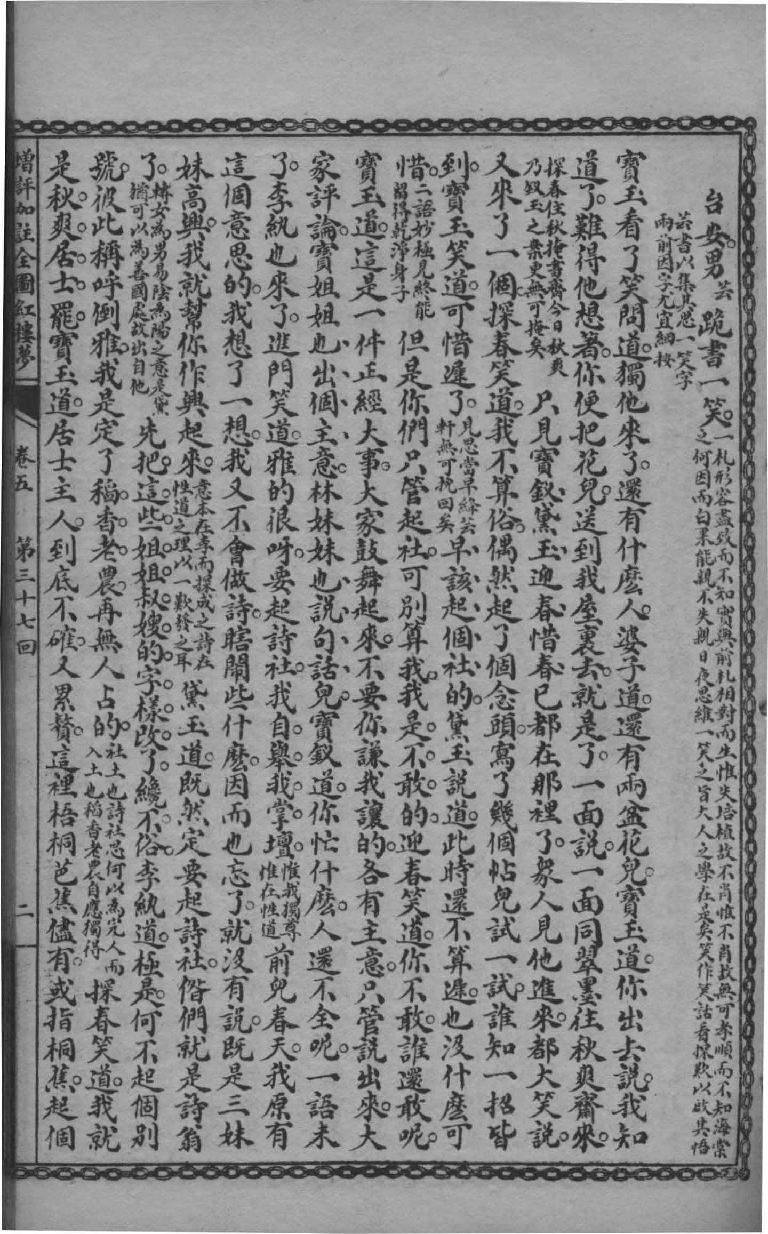 台安男芸跪書一笑一札形容盡致而不知實與前札相對而生惟失培植故不肖惟不肖故無可孝順而不知海棠
之何因而白果能親不失親日夜思維一笑之旨大人之學在是矣笑作笑話看探歎以啟其悟
芸書以集其思一笑字
兩前因字尤宜細按
寶玉看了笑問道獨他來了還有什麽人婆子道還有兩盆花兒寶玉道你出去說我知
道了難得他想著你便把花兒送到我屋裏去就是了一面說一面同翠墨往秋爽齋來
探春住秋掩書齋今日秋爽
乃釵玉之案更無可掩矣
只見寶釵黛玉迎春惜春已都在那裡了衆人見他進來都大笑說
又來了一個探春笑道我不算俗偶然起了個念頭寫了幾個帖兒試一試誰知一招皆
到寶玉笑道可惜遲了見思當早絳芸
軒無可挽回矣早該起個社的黛玉說道此時還不算遲也没什麽可
惜二語妙極見終能
留得乾淨身子但是你們只管起社可別算我我是不敢的迎春笑道你不敢誰還敢呢
寶玉道這是一件正經大事大家鼓舞起來不要你謙我讓的各有主意只管說出來大
家評論寶姐姐也出個主意林妹妹也說句話兒寶釵道你忙什麽人還不全呢一語未
了李紈也來了進門笑道雅的很呀要起詩社我自舉我掌壇惟我獨尊
惟在性道前兒春天我原有
這個意思的我想了一想我又不會做詩瞎鬧些什麽因而也忘了就没有說旣是三妹
妹高興我就幫你作興起來意本在李而探成之詩在
性道之理以一歎發之耳黛玉道旣然定要起詩社偺們就是詩翁
了轉女為男易陰為陽之意是黛
猶可以為善國處故出自他先把這些姐姐叔嫂的字樣改了纔不俗李紈道極是何不起個別
號彼此稱呼倒雅我是定了稻香老農再無人占的社土也詩社思何以為完人而
入土也稻香老農自應獨得探春笑道我就
是秋爽居士罷寶玉道居士主人到底不確又累贅這裡梧桐芭蕉儘有或指桐蕉起個
增評加註全圖紅樓夢　卷五　第三十七回　二